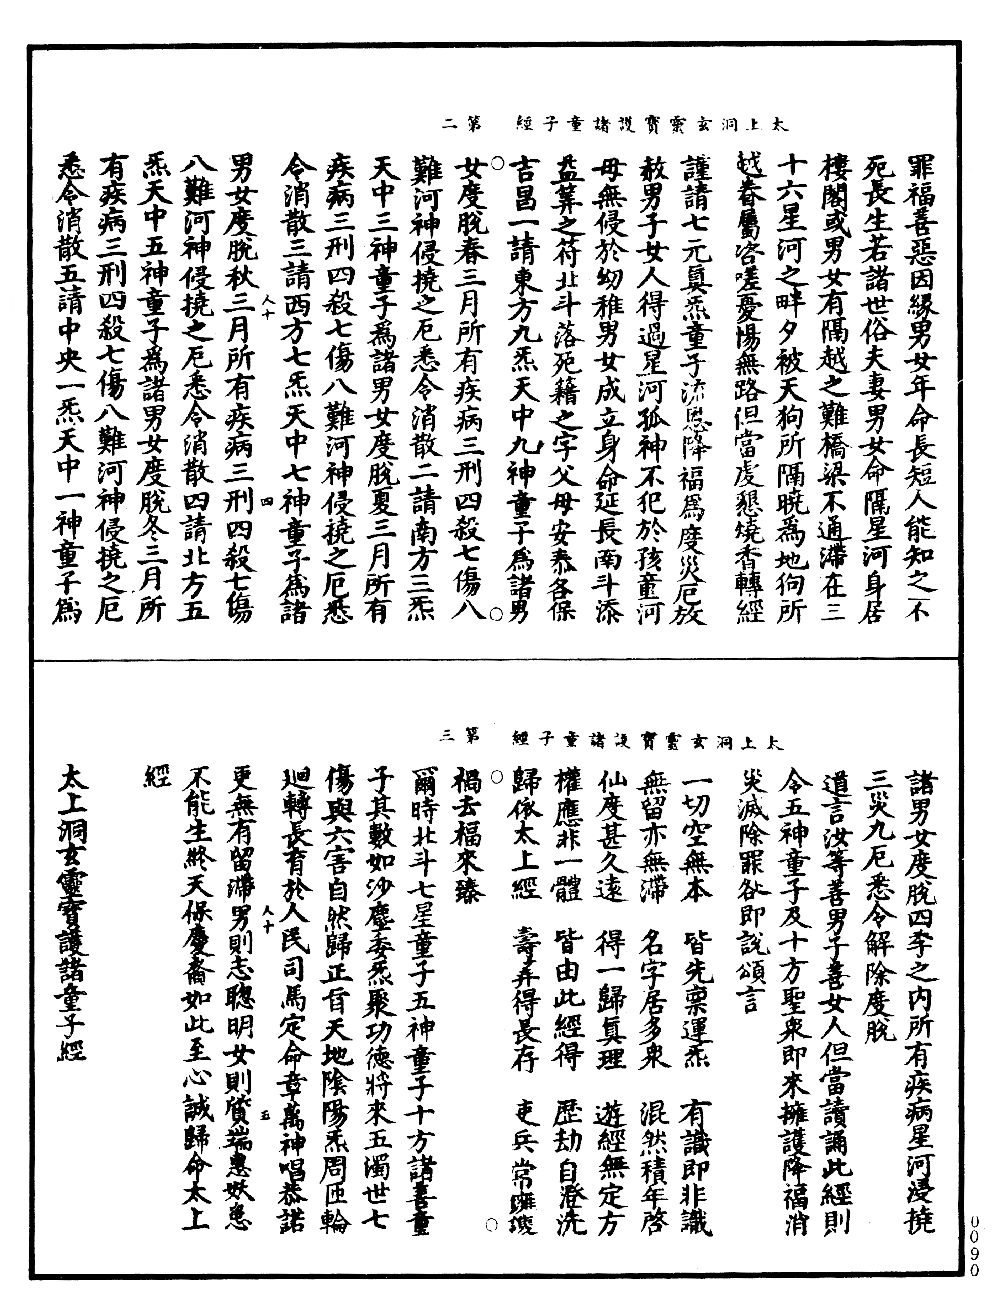 太上洞玄靈寶護諸童子經　第二
罪福善惡因緣男女年命長短人能知之不
死長生若諸世俗夫妻男女命隔星河身居
樓閣或男女有隔越之難橋梁不通滯在三
十六星河之畔夕被天狗所隔曉為地狗所
越眷屬咨嗟憂惕無路但當虔懇燒香轉經
謹請七元真炁童子流恩降福為度災厄放
赦男子女人得過星河孤神不犯於孩童河
母無侵於幼稚男女成立身命延長南斗添
益筭之符北斗落死籍之字父母安泰各保
吉昌一請東方九炁天中九神童子為諸男
女度脫春三月所有疾病三刑四殺七傷八
難河神侵撓之厄悉令消散二請南方三炁
天中三神童子為諸男女度脫夏三月所有
疾病三刑四殺七傷八難河神侵撓之厄悉
令消散三請西方七炁天中七神童子為諸
人十　四
男女度脫秋三月所有疾病三刑四殺七傷
八難河神侵撓之厄悉令消散四請北方五
炁天中五神童子為諸男女度脫冬三月所
有疾病三刑四殺七傷八難河神侵撓之厄
悉令消散五請中央一炁天中一神童子為
太上洞玄靈寶護諸童子經　第三
諸男女度脫四季之內所有疾病星河浸撓
三災九厄悉令解除度脫
道言汝等善男子善女人但當讀誦此經則
令五神童子及十方聖衆即來擁護降福消
災滅除罪咎即說頌言
一切空無本　皆先稟運炁　有識即非識
無留亦無滯　名字居多衆　混然積年啓
仙度甚久遠　得一歸真理　遊經無定方
權應非一體　皆由此經得　歷劫自澄洗
歸依太上經　壽筭得長存　吏兵常擁護
禍去福來臻
爾時北斗七星童子五神童子十方諸善童
子其數如沙塵委炁聚功德將來五濁世七
傷與六害自然歸正旨天地陰陽炁周匝輪
迴轉長育於人民司馬定命章萬神唱恭諾
人十　五
更無有留滯男則志聰明女則質端惠妖患
不能生終天保慶裔如此至心誠歸命太上
經
太上洞玄靈寶護諸童子經
0090